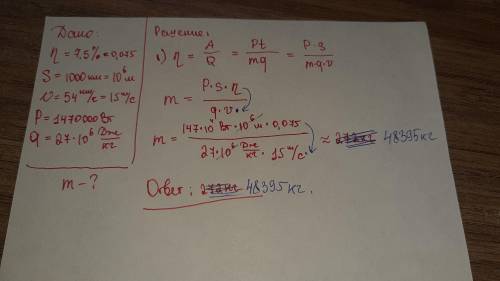 Дано:
η = 7,5% = 0,075
S = 1000 км = 10⁶ м
v = 54 км/с = 15 м/с
P = 1470000 Вт
q = 27·10⁶ Дж/кг
m - ?
Решение:
1) η = A/Q = Pt/mq = P·s/m·q·v
m = P·s·η/q·v.
m = 147·10⁴ Вт·10⁶ м·0,075/27·10⁶ Дж/кг·15 м/с. ≈ 272 кг 48395 кг
Ответ: 272 кг 48395 кг.